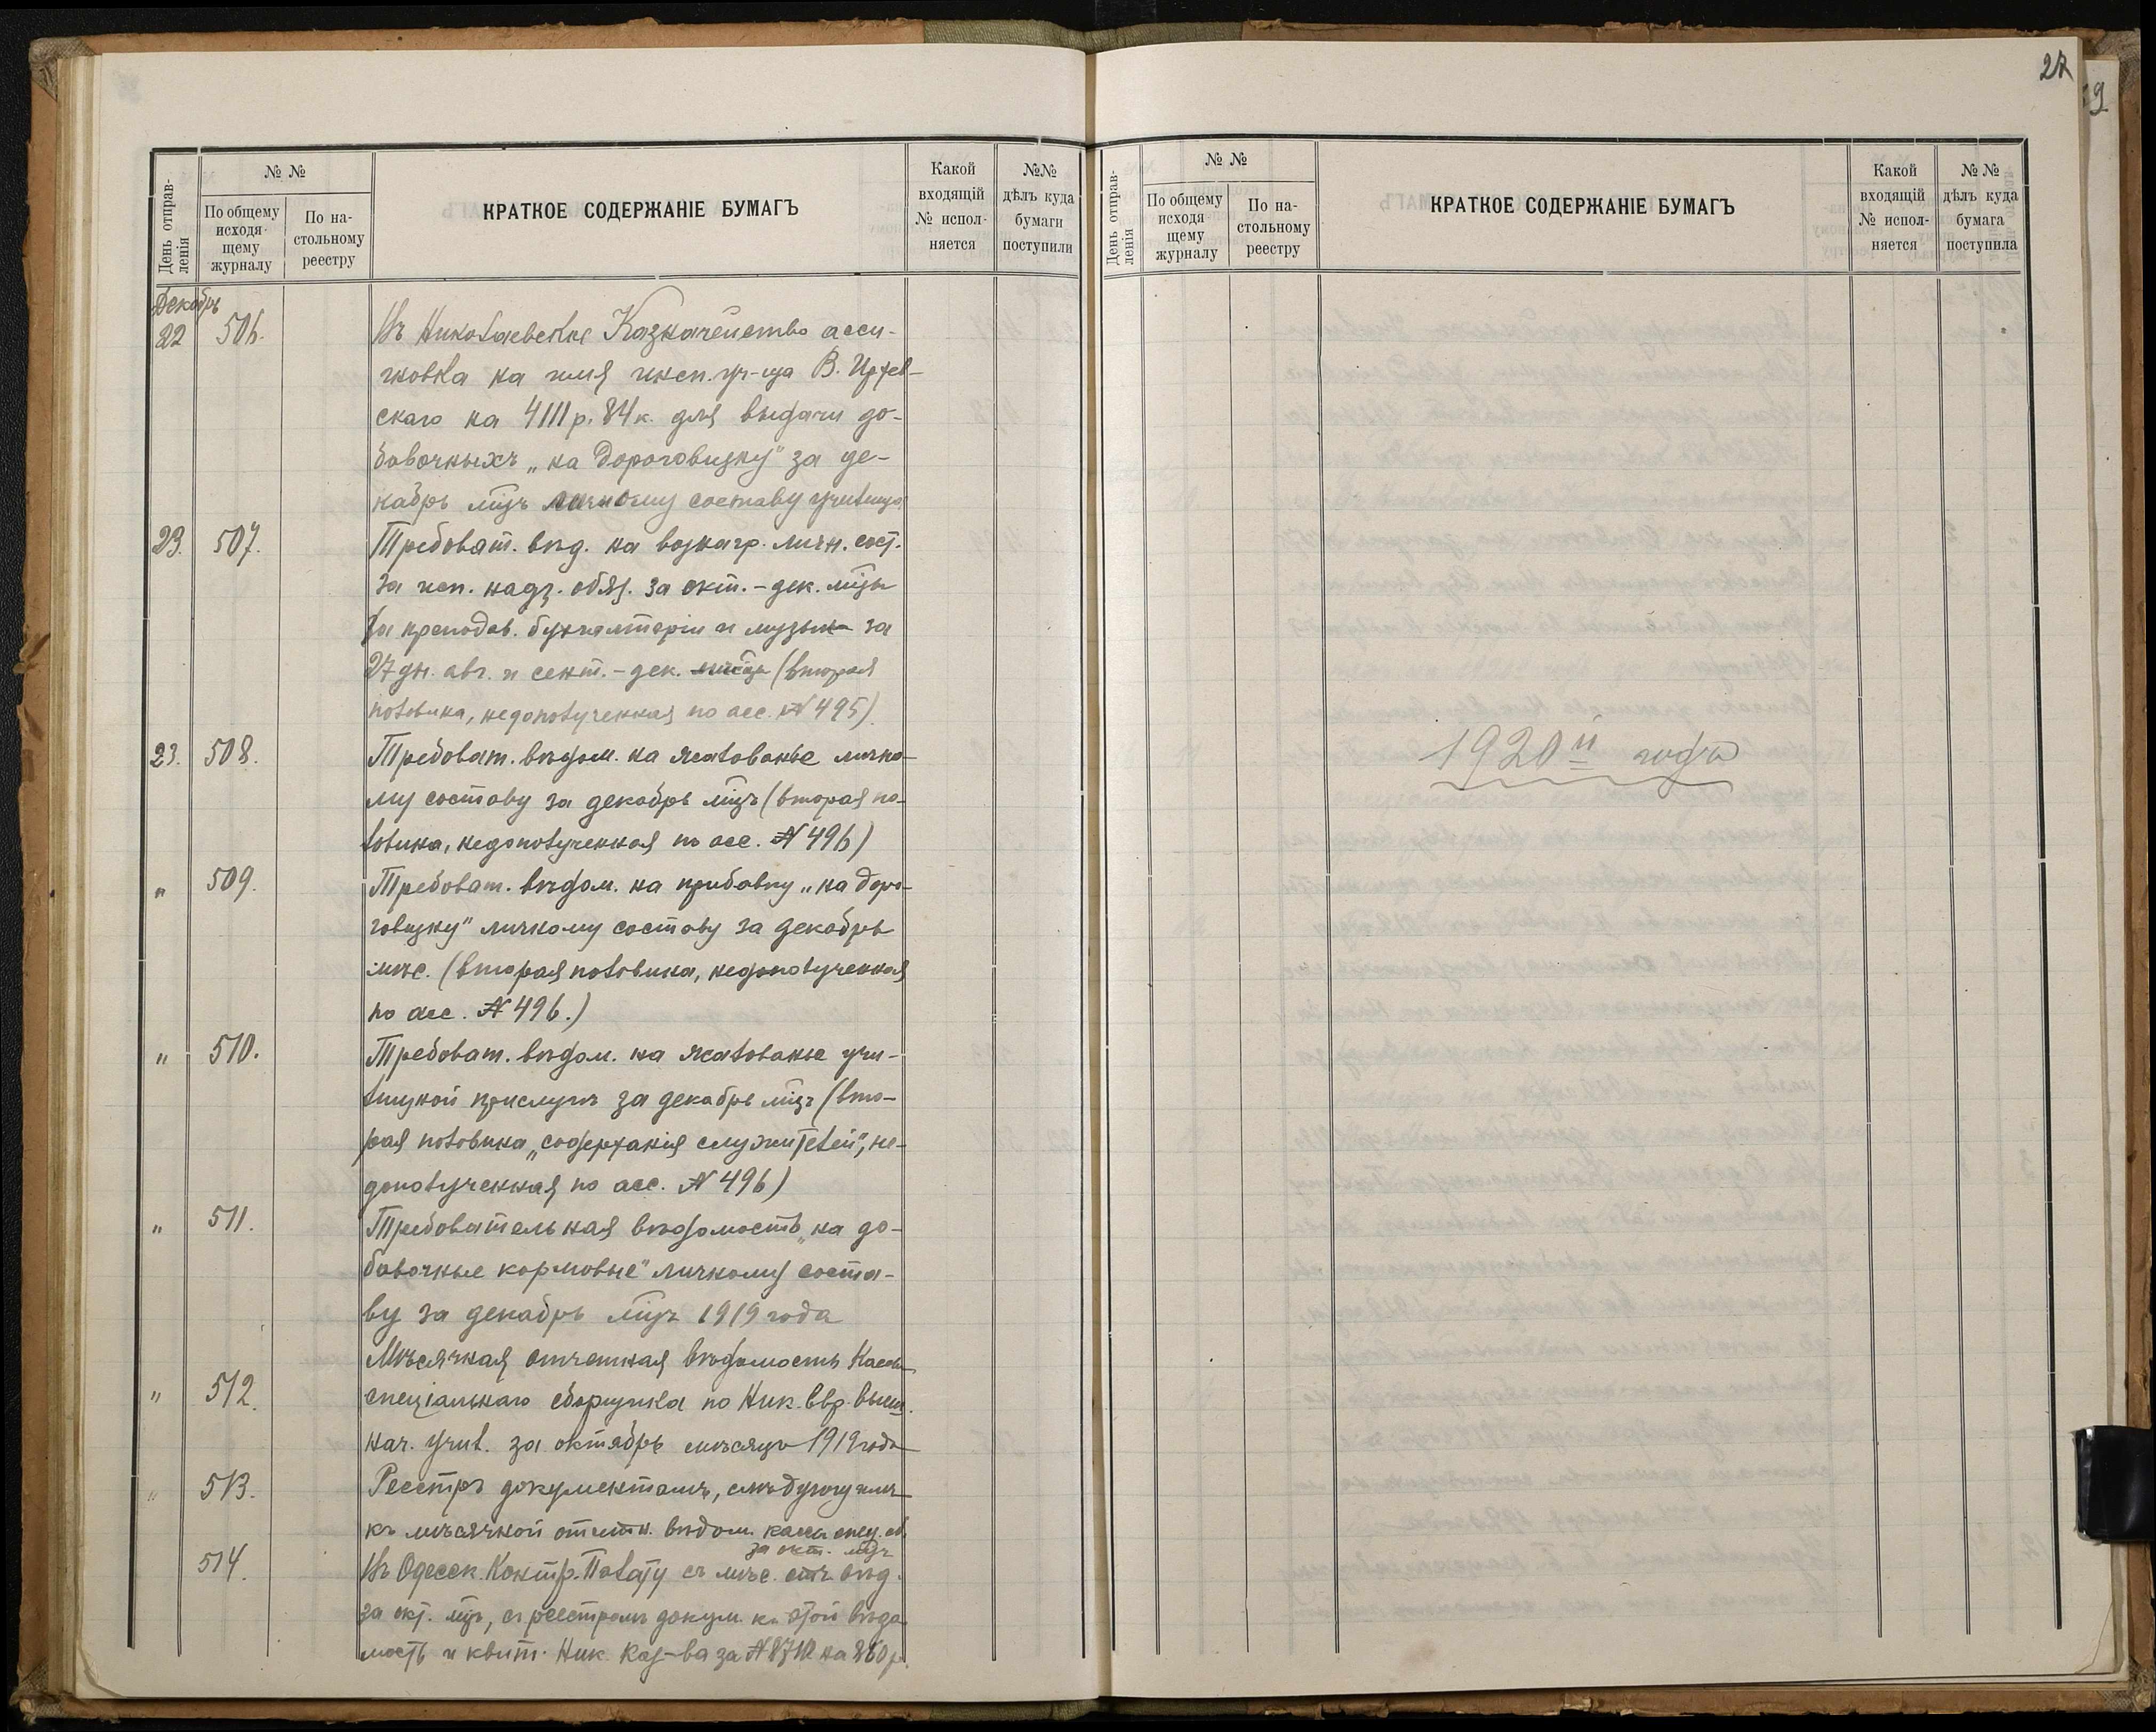 27
9
День отправ-
ленія
№ №
По общему
исходя-
щему
журналу
По на-
стольному
реестру
КРАТКОЕ СОДЕРЖАНІЕ БУМАГЪ
Какой
входящій
№ испол-
няется
№№
дѣлъ куда
бумаги
поступили
Декабрь
22 506. Въ Николаевское Казначейство асси-
гновка на имя инсп. уч-ща В.
скаго на 4111 р. 84 к. для выдачи до-
бавочныхъ „на дороговизну" за де-
кабрь мцъ личному составу училища
23. 507. Требоват. вѣд. на вознагр. личн. сост.
за исп. надз. обяз. за окт. - дек. мцы
за преподав. бухгалтеріи и музыки за
27 дн. авг. и сент. - дек. (вторая
половина, недополученная по асс. № 495).
23. 508. Требоват. вѣдом. на жалованье лично-
му составу за декабрь мцъ (вторая по-
ловина, недополученная по асс. № 496)
" 509. Требоват. вѣдом. на прибавку „на доро-
говизну" личному составу за декабрь
мѣс. (вторая половина, недополученная
по асс. № 496.)
" 510. Требоват. вѣдом. на жалованье учи-
лищной прислугѣ за декабрь мцъ (вто-
рая половина „содержанія служителей", не-
дополученная по асс. № 496)
" 511. Требовательная вѣдомость „на до-
бавочные кормовые" личному соста-
ву за декабрь мцъ 1919 года
Мѣсячная отчетная вѣдомость Кассы
" 512. спеціальнаго сборщика по Ник. евр. высш.
нач. учил. за октябрь мѣсяцъ 1919 года
" 513. Реестръ документамъ, слѣдующимъ
къ мѣсячной отчетн. вѣдом. кассы спец. сб.
за окт. мцъ
514. Въ Одесск. Контр. Палату съ мѣс. отч. вѣд.
за окт. мцъ, съ реестромъ докум. къ этой вѣдо-
мость и квит. Ник. Каз-ва за № на 860 р.
День отправ-
ленія
№ №
По общему
исходя-
щему
журналу
По на-
стольному
реестру
КРАТКОЕ СОДЕРЖАНІЕ БУМАГЪ
Какой
входящій
№ испол-
няется
№ №
дѣлъ куда
бумага
поступила
1920й годъ